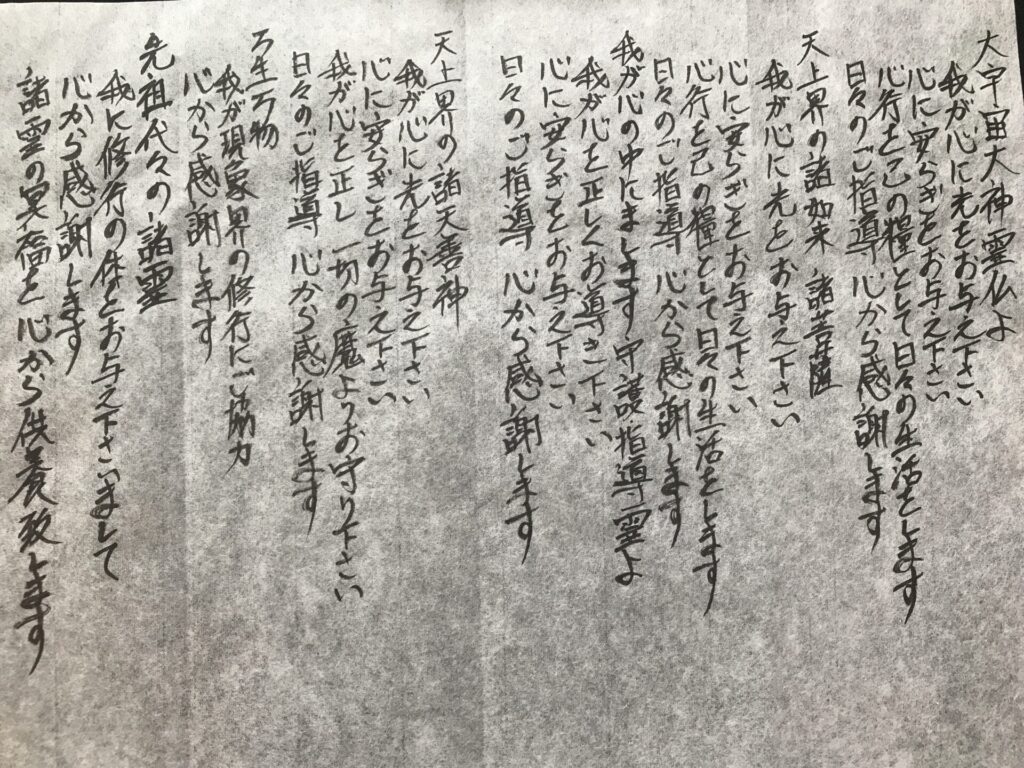 大宇宙大神霊仏よ
我が心に光をお与え下さい
心に安らぎをお与え下さい
心行を己の糧として日々の生活をします
日々のご指導 心から感謝します
天上界の諸如来 諸菩薩
我が心に光をお与え下さい
心に安らぎをお与え下さい
心行を己の糧として日々の生活をします
日々のご指導 心から感謝します
我が心の中にまします守護指導霊よ
我が心を正しくお導き下さい
心に安らぎをお与え下さい
日々のご指導 心から感謝します
天上界の諸天善神
我が心に光をお与え下さい
心に安らぎをお与え下さい
我が心を正し 一切の魔よりお守り下さい
日々のご指導 心から感謝します
万生万物
我が現象界の修行にご協力
心から感謝します
先祖代々の諸霊
我に修行の体をお与え下さいまして
心から感謝します
諸霊の冥福を心から供養致します